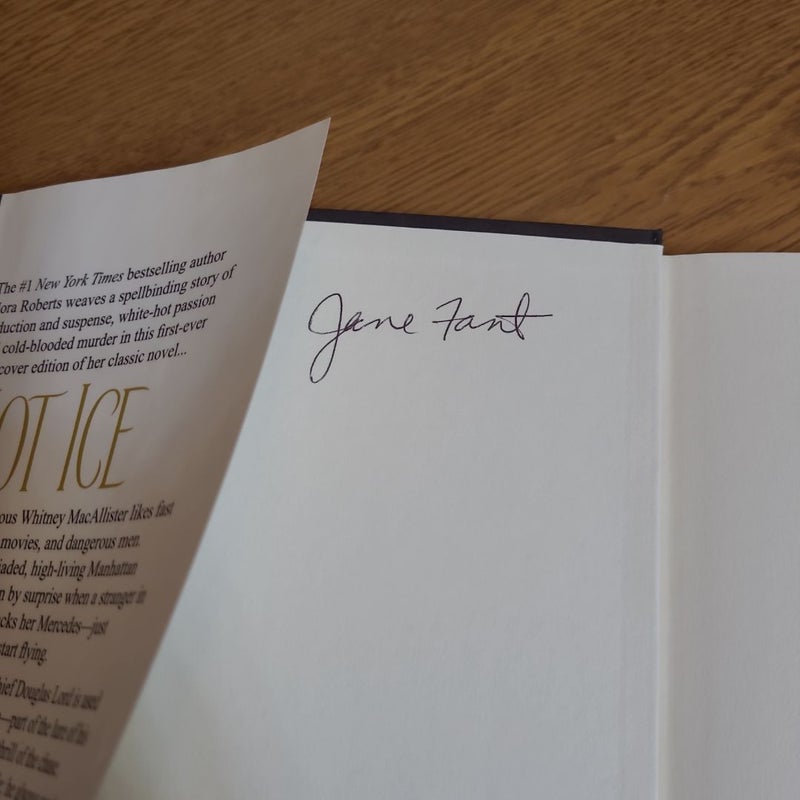 The #1 New York Times bestselling author
ora Roberts weaves a spellbinding story of
duction and suspense, white-hot passion
cold-blooded murder in this first-ever
cover edition of her classic novel...
OT ICE
ous Whitney MacAllister likes fast
movies, and dangerous men.
aded, high-living Manhattan
n by surprise when a stranger in
cks her Mercedes—just
start flying.
hief Douglas Lord is used
—part of the lure of his
thrill of the chase.
Jane Fant